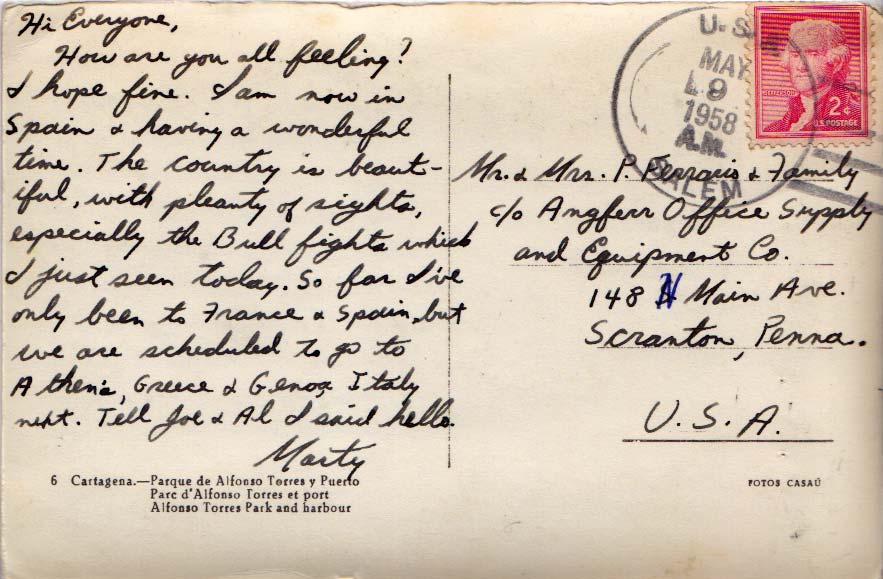 Hi Everyone,
How are you all feeling?
I hope fine. I am now in
Spain & having a wonderful
time. The country is beaut-
iful, with pleanty of sights,
especially the Bull fights which
I just seen today. So far I've
only been to France & Spain, but
we are scheduled to go to
Athens, Greece & Genoa, Italy
next. Tell Joe & Al I said hello.
Marty
6 Cartagena.—Parque de Alfonso Torres y Puerto
Parc d'Alfonso Torres et port
Alfonso Torres Park and harbour
U.S.
MAY
9
1958
A.M.
SALEM
JEFFERSON
2¢
U.S. POSTAGE
Mr. & Mrs. P. Ferraris & Family
c/o Angferr Office Supply
and Equipment Co.
148 N Main Ave.
Scranton, Penna.
U.S.A.
FOTOS CASAÚ